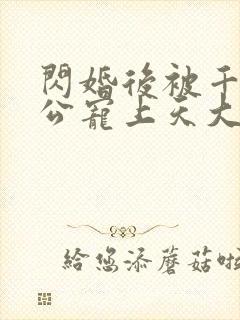 閃婚後被千
公寵上天大
給您添蘑菇啦